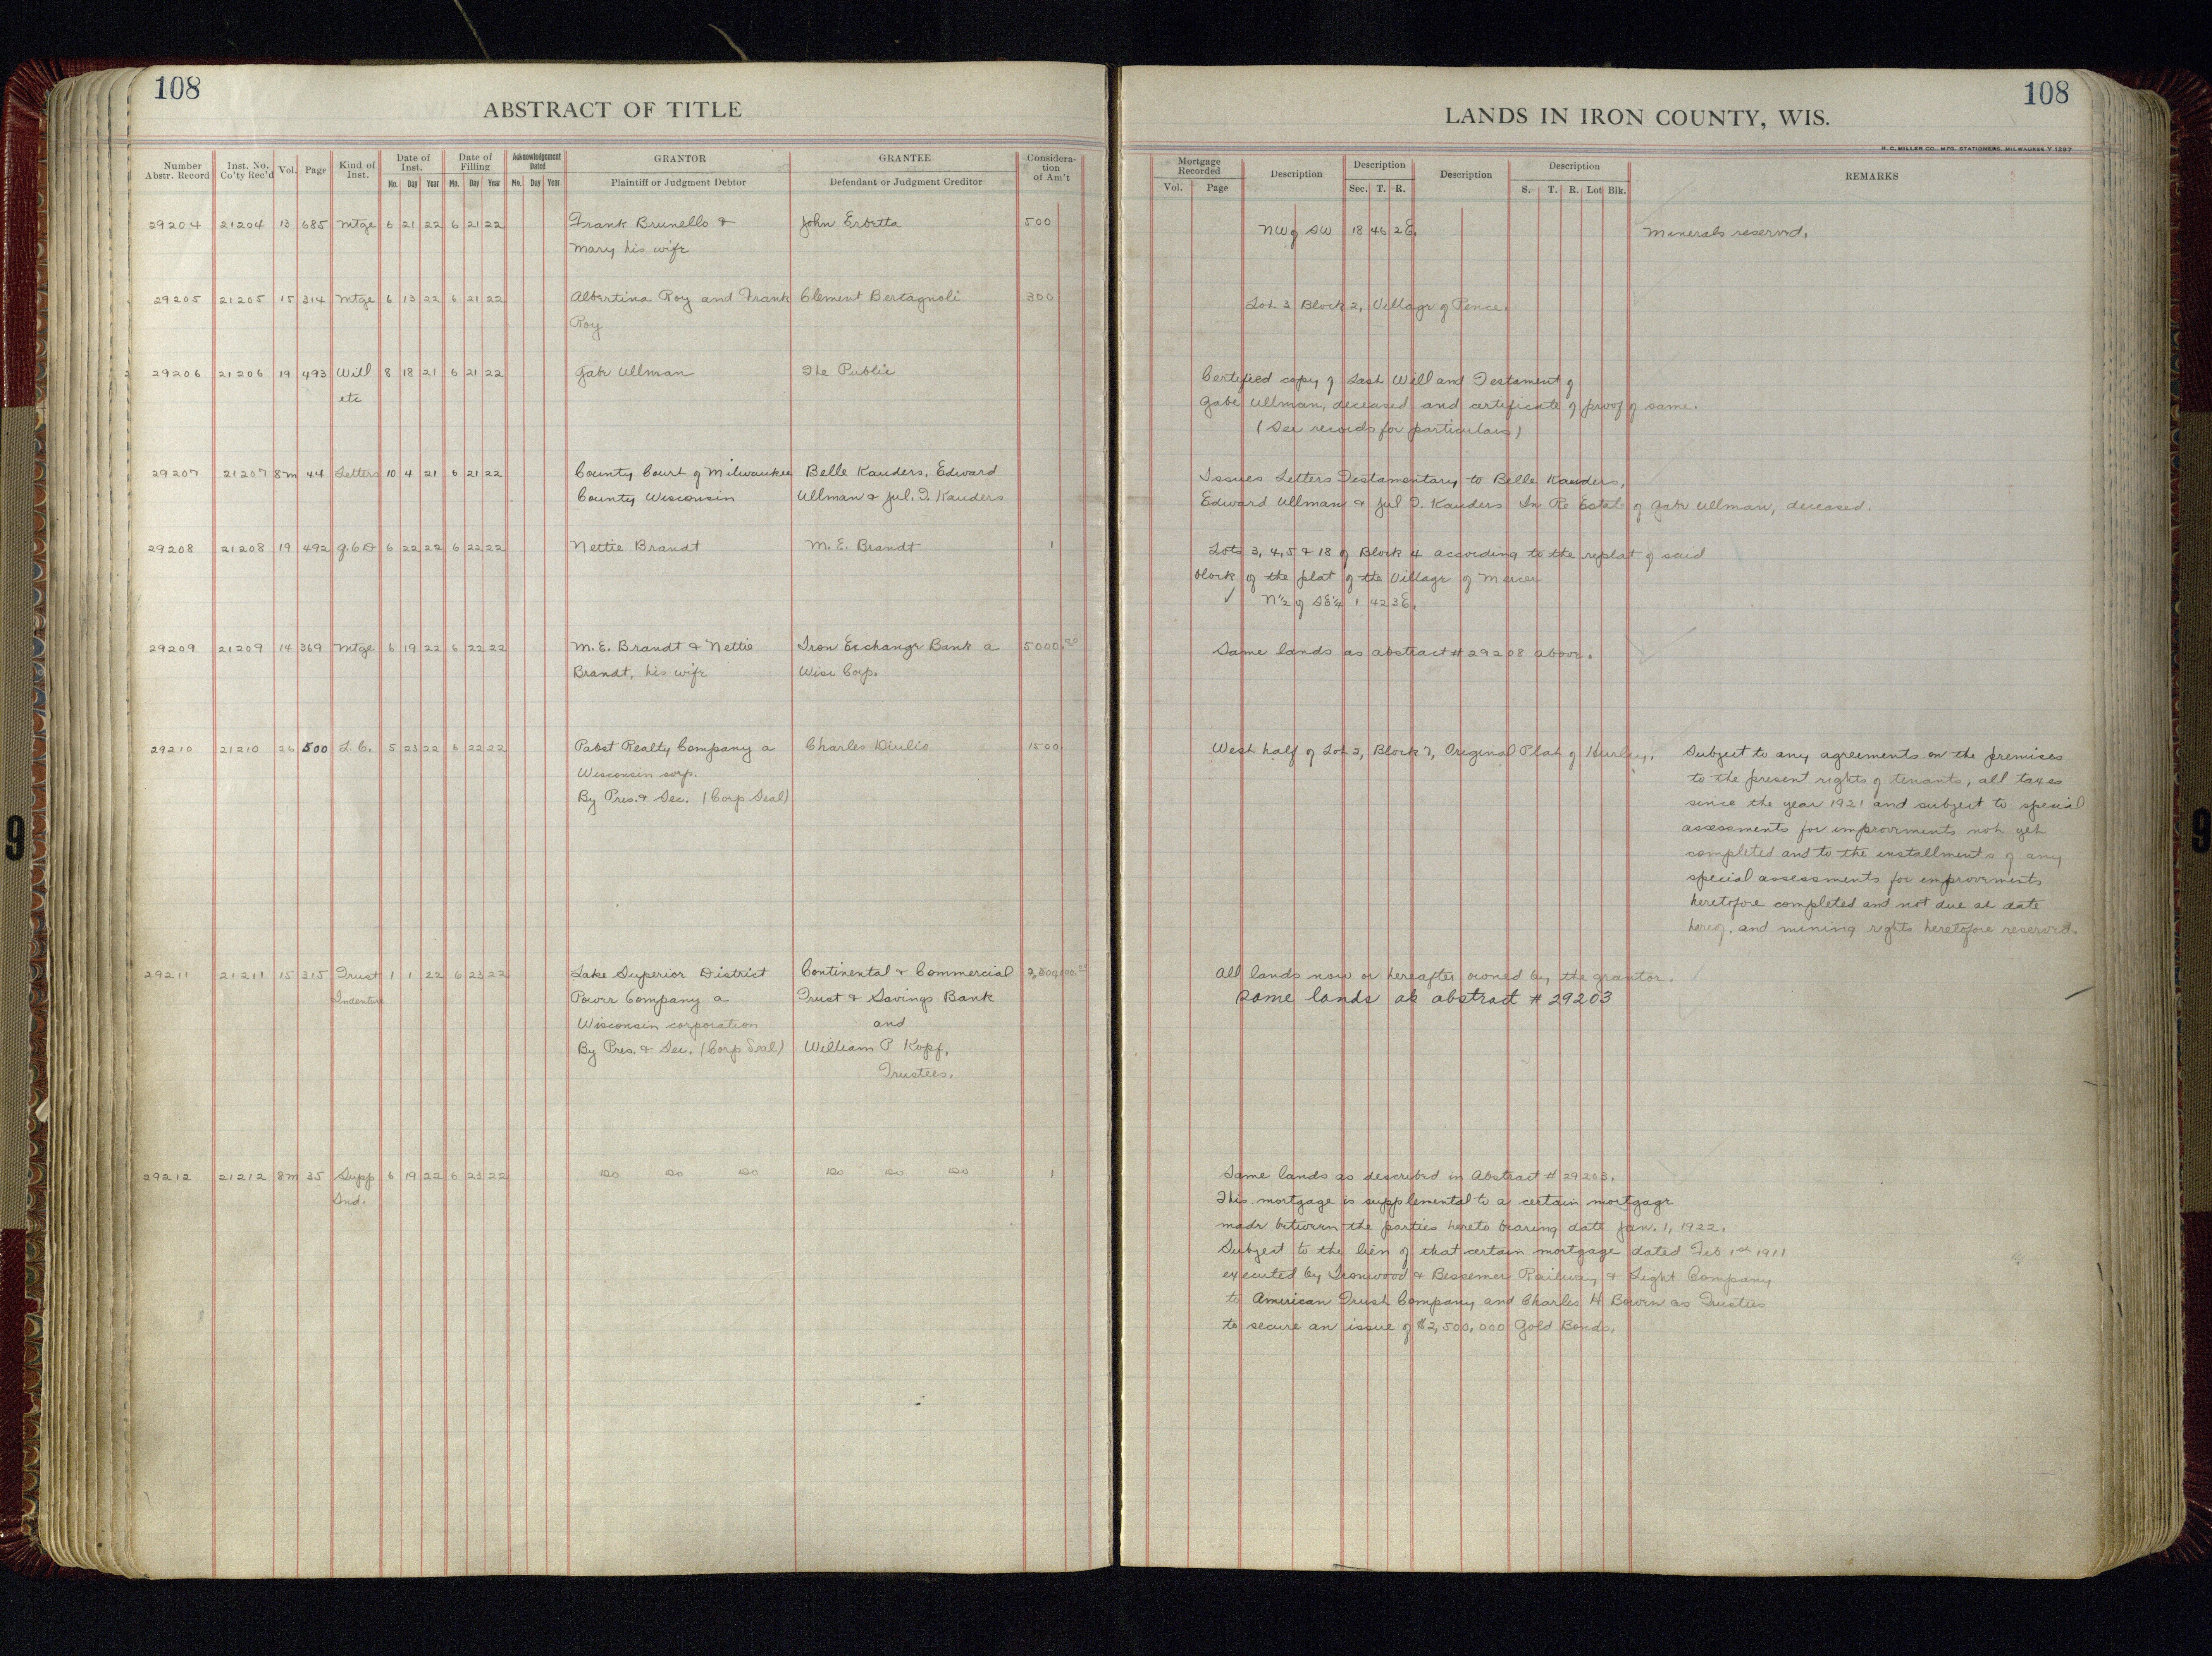 108
ABSTRACT OF TITLE
Number Abstr. Record Inst. No. Co'ty Rec'd Vol. Page Kind of Inst. Date of Inst. Mo. Day Year Date of Filling Mo. Day Year Acknowledgement Dated Mo. Day Year GRANTOR Plaintiff or Judgment Debtor GRANTEE Defendant or Judgment Creditor Considera-tion of Am't
29204 21204 13 685 Mtge 6 21 22 6 21 22 Frank Brunello & John Erbetta 500
Mary his wife
29205 21205 15 314 Mtge 6 13 22 6 21 22 Albertina Roy and Frank Clement Bertagnoli 300
Roy
29206 21206 19 493 Will 8 18 21 6 21 22 Gabe Ullman The Public
etc
29207 21207 8m 44 Letters 10 4 21 6 21 22 County Court of Milwaukee Belle Kauders, Edward
County Wisconsin Ullman & Jul. I. Kauders
29208 21208 19 492 Q.C.D 6 22 22 6 22 22 Nettie Brandt M. E. Brandt 1
29209 21209 14 369 Mtge 6 19 22 6 22 22 M. E. Brandt & Nettie Iron Exchange Bank a 5000.00
Brandt, his wife Wisc Corp.
29210 21210 26 500 L. C. 5 23 22 6 22 22 Pabst Realty Company a Charles Diulio 1500
Wisconsin corp.
By Pres. & Sec. (Corp Seal)
29211 21211 15 315 Trust 1 1 22 6 23 22 Lake Superior District Continental & Commercial
Indenture Power Company a Trust & Savings Bank
Wisconsin corporation and
By Pres. & Sec. (Corp Seal) William P Kopf,
Trustees.
29212 21212 8m 35 Supp 6 19 22 6 23 22 Do Do Do Do Do Do 1
Ind.
108
LANDS IN IRON COUNTY, WIS.
H. C. MILLER CO., MFG. STATIONERS, MILWAUKEE
Mortgage Recorded Vol. Page Description Description Sec. T. R. Description Description S. T. R. Lot Blk. REMARKS
NW of SW 18 46 2E. Minerals reserved.
Lot 3 Block 2, Village of Pence.
Certified copy of Last Will and Testament of
Gabe Ullman, deceased and certificate of proof of same.
(See records for particulars)
Issues Letters Testamentary to Belle Kauders,
Edward Ullman & Jul I. Kauders In Re Estate of Gabe Ullman, deceased.
Lots 3, 4, 5 & 18 of Block 4 according to the replat of said
block of the plat of the Village of Mercer
✓ N½ of SE¼ 1 42 3E.
Same lands as abstract # 29208 above.
West half of Lot 3, Block 7, Original Plat of Hurley. Subject to any agreements on the premises
to the present rights of tenants, all taxes
since the year 1921 and subject to special
assessments for improvements not yet
completed and to the installments of any
special assessments for improvements
heretofore completed and not due at date
hereof. and mining rights heretofore reserved.
All lands now or hereafter owned by the grantor.
same lands as abstract # 29203
Same lands as described in Abstract # 29203.
This mortgage is supplemental to a certain mortgage
made between the parties hereto bearing date Jan. 1, 1922.
Subject to the lien of that certain mortgage dated Feb 1st 1911
executed by Ironwood & Bessemer Railway & Light Company
to American Trust Company and Charles H Bowen as Trustees
to secure an issue of $2,500,000 Gold Bonds.
9
9